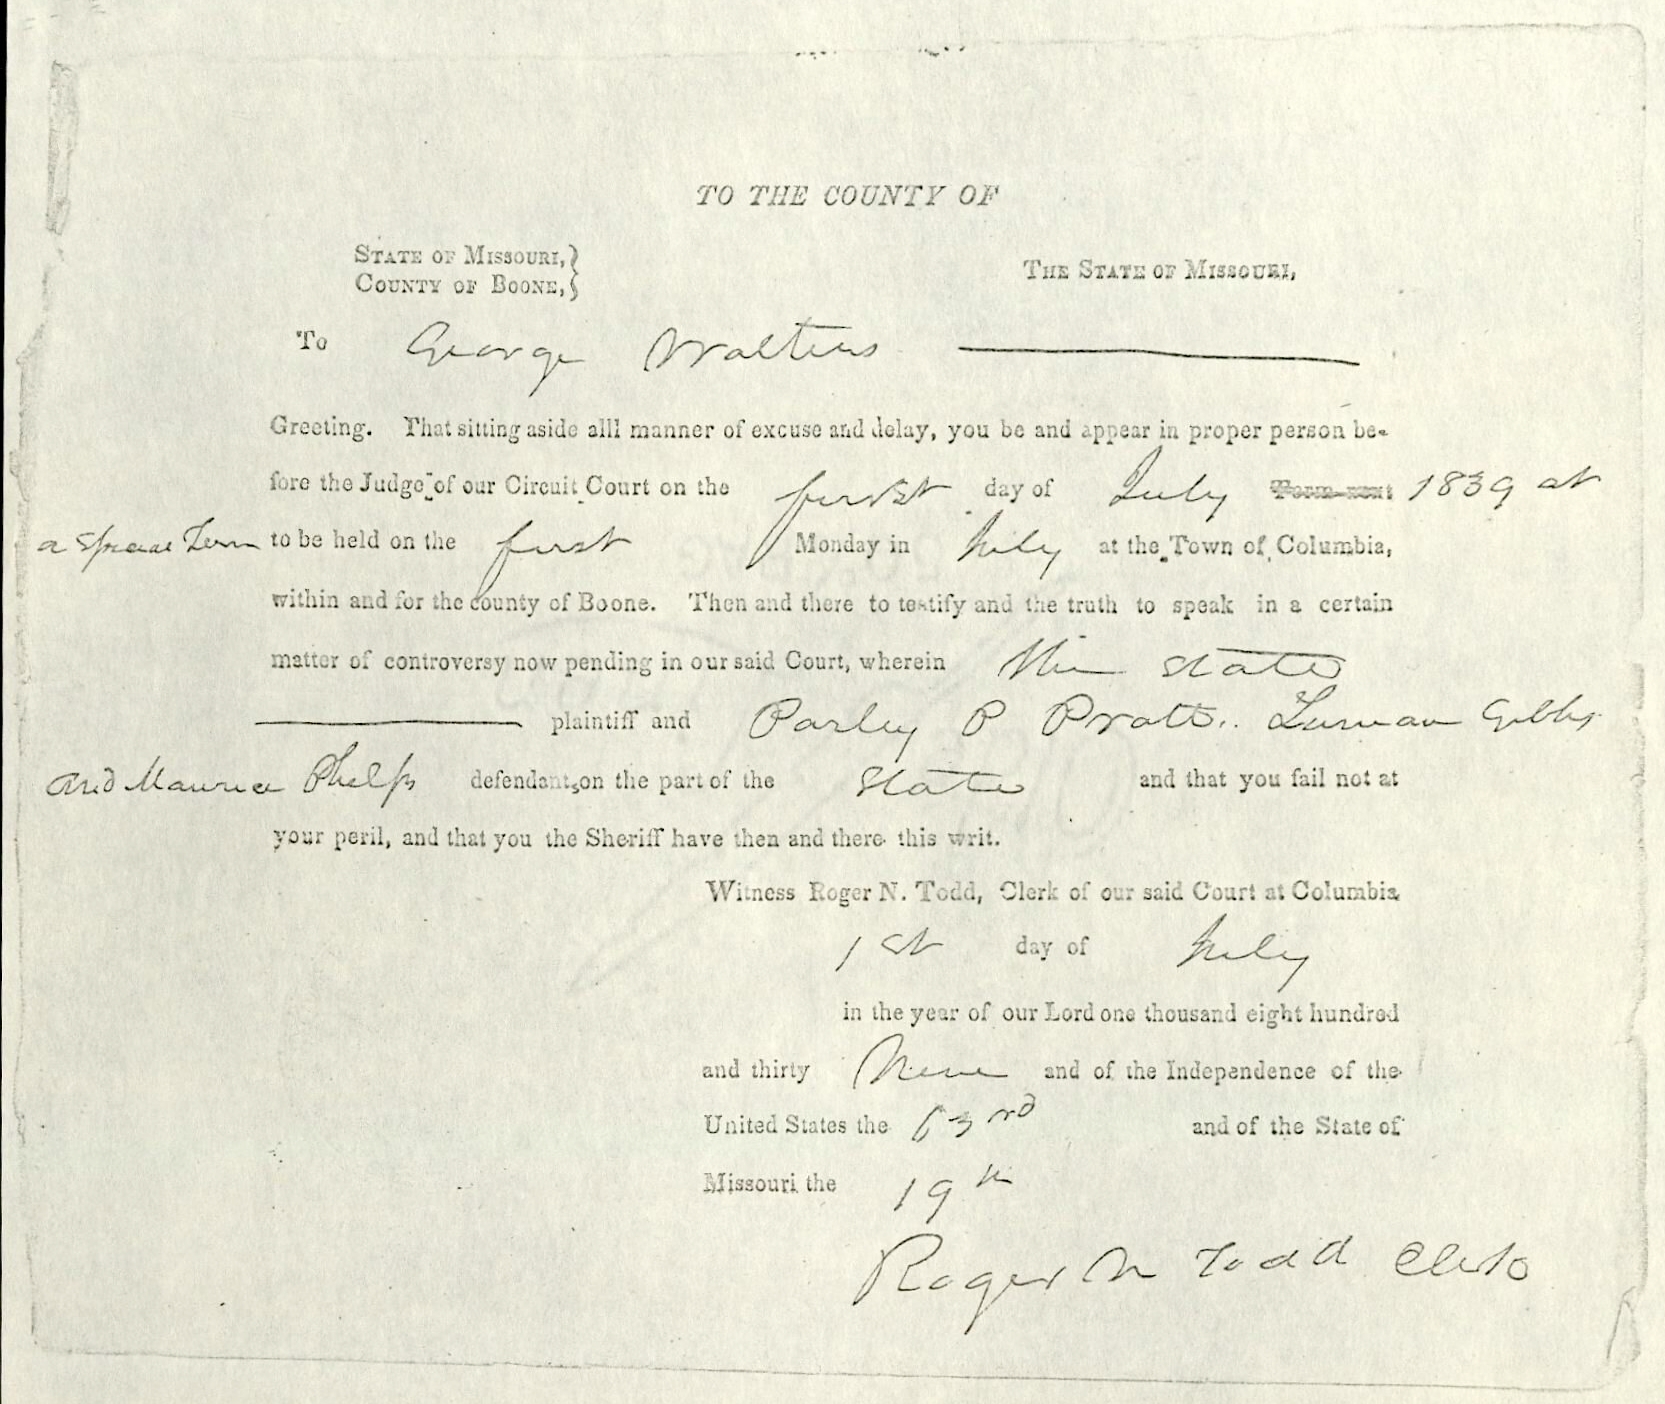 TO THE COUNTY OF
STATE OF MISSOURI,}
COUNTY OF BOONE,}
THE STATE OF MISSOURI,
To George Walters
Greeting. That sitting aside alll manner of excuse and delay, you be and appear in proper person be-
fore the Judge of our Circuit Court on the first day of July Term next 1839 at
a special Term to be held on the first Monday in July at the Town of Columbia,
within and for the county of Boone. Then and there to testify and the truth to speak in a certain
matter of controversy now pending in our said Court, wherein The State
plaintiff and Parley P Pratt. Luman Gibbs
and Maurice Phelps defendants on the part of the State and that you fail not at
your peril, and that you the Sheriff have then and there this writ.
Witness Roger N. Todd, Clerk of our said Court at Columbia
1st day of July
in the year of our Lord one thousand eight hundred
and thirty Nine and of the Independence of the
United States the 63rd and of the State of
Missouri the 19th
Roger N Todd Clerk